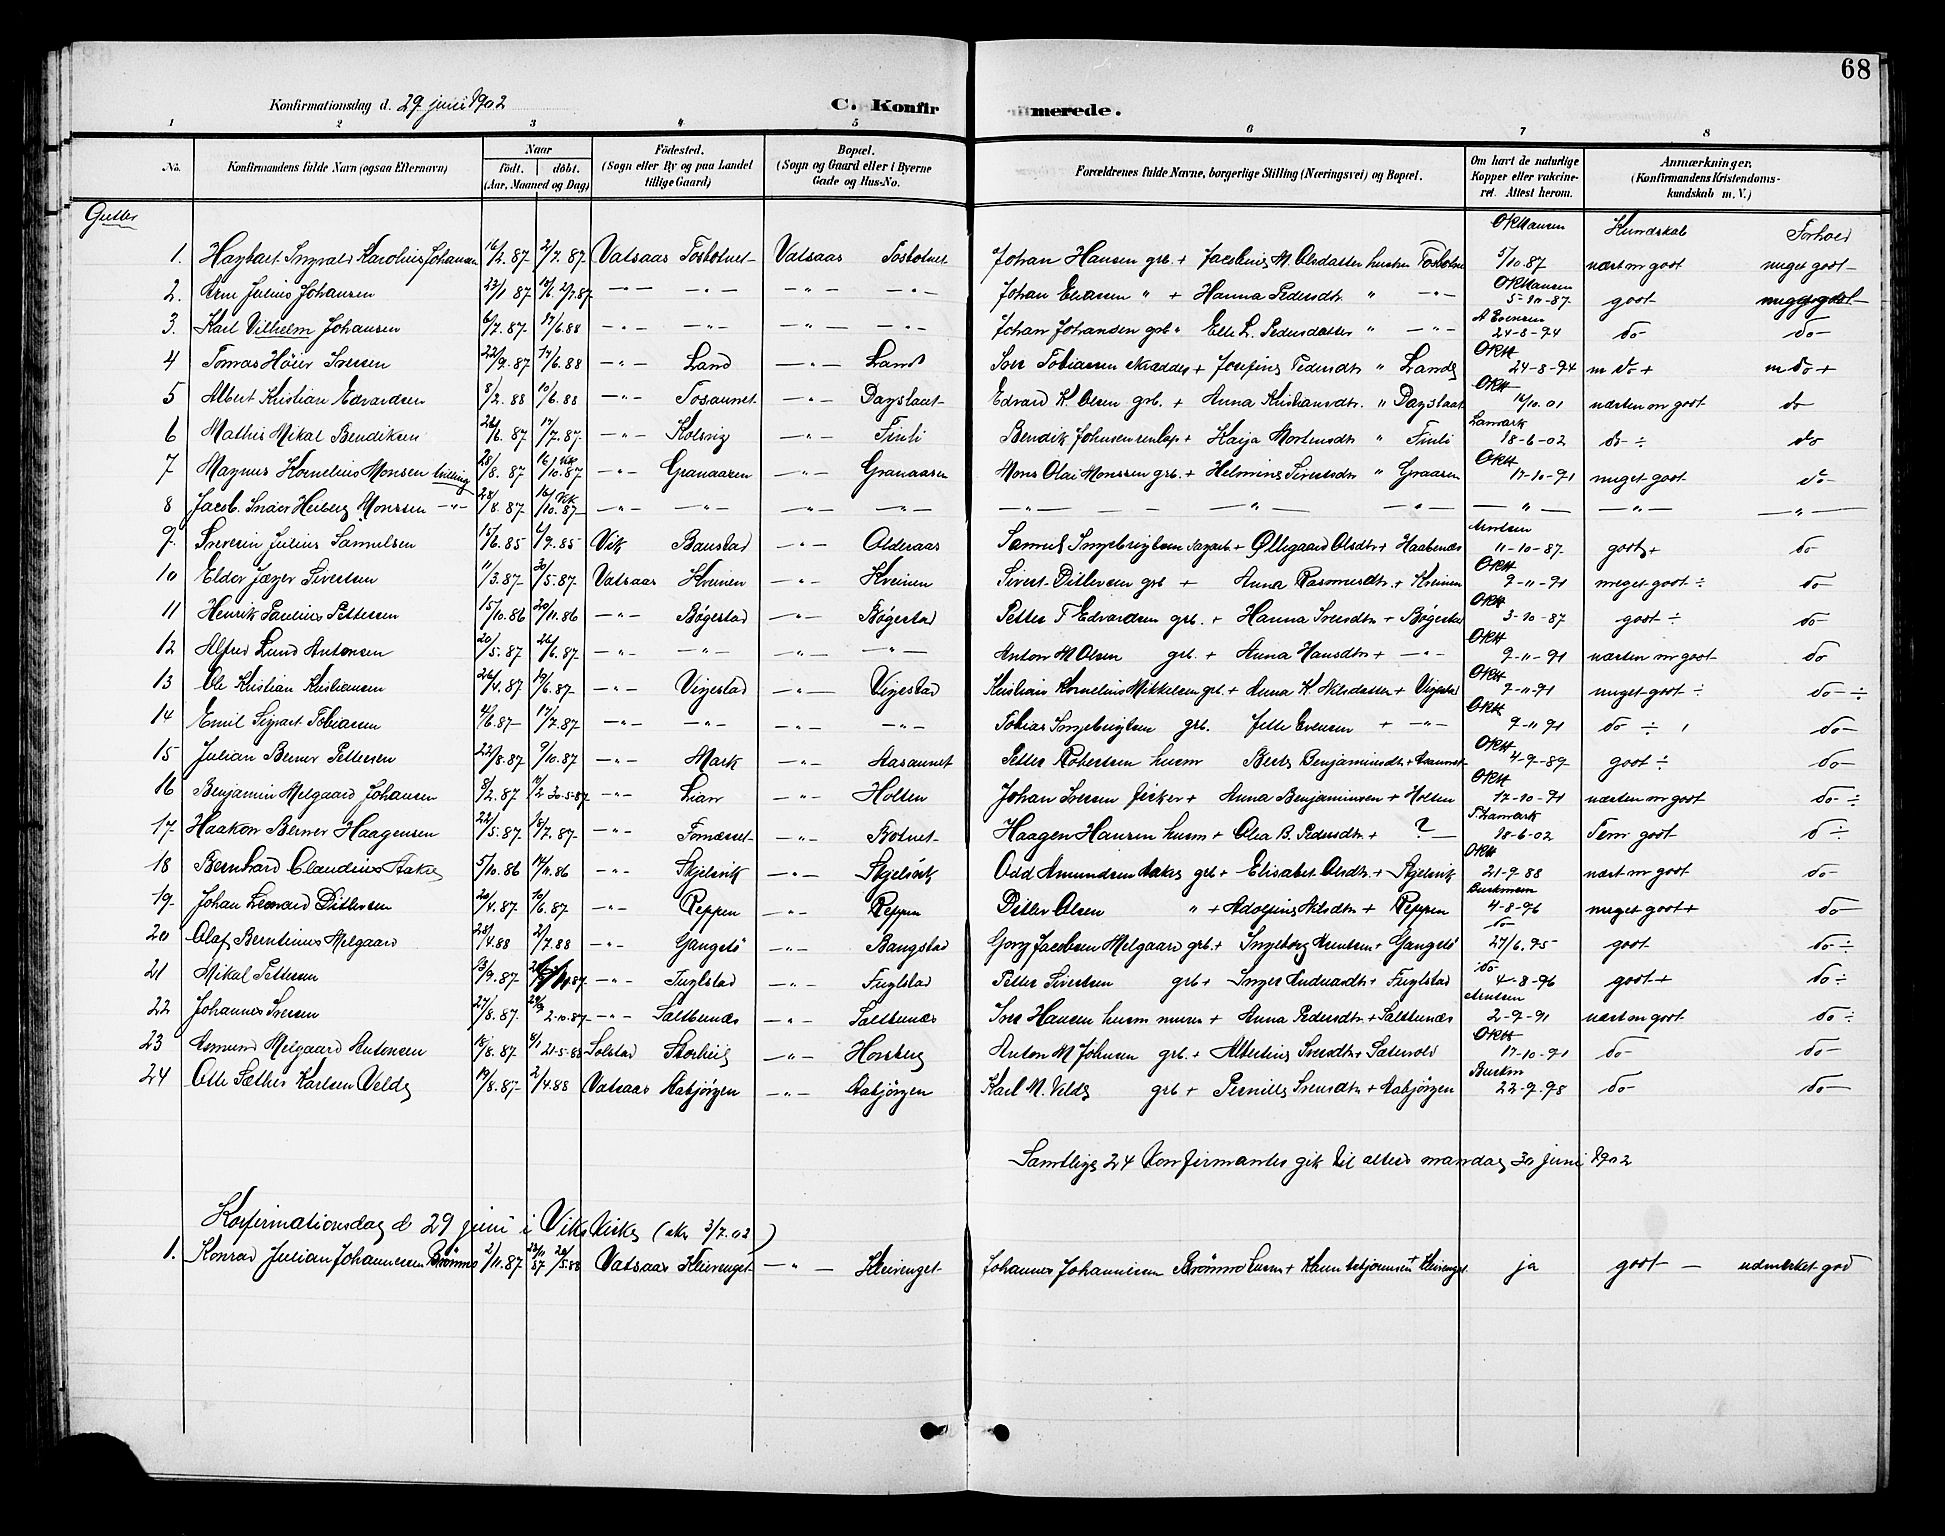 68
Konfirmationsdag d. 29 juni 1902 C. Konfirmerede.
1 2 3 4 5 6 7 8
No. Konfirmandens fulde Navn (ogsaa Efternavn) Naar født. døbt. (Aar, Maaned og Dag) Fødested. (Sogn eller By og paa Landet tillige Gaard) Bopæl. (Sogn og Gaard eller i Byerne Gade og Hus-No. Forældrenes fulde Navne, borgerlige Stilling (Næringsvei) og Bopæl. Om havt de naturlige Kopper eller vakcineret. Attest herom. Anmærkninger. (Konfirmandens Kristendomskundskab m. V.)
Gutter Kundskab Forhold
1. Ingvald Karolius Johansen 16/2.87 2/7.87 Vatsaas Fosbotnet Vatsaas Fosbotnet Johan Hansen grb. + M. Olsdatter hustru Fosbotnet 5/10.87 næst m godt meget godt
2. Arne Julius Johansen 23/1 87 —"— —"— —"— —"— Johan Eliasen " + Hanna Pedersdtr. " —"— 5-10-87 godt meget godt
3. Karl Vilhelm Johansen 6/7.87 17/6.88 —"— —"— —"— —"— Johan Johansen grb " Elle L. Pedersdatter " —"— 24-8-94 do do
4 Tomas Høier Iversen 22/9.87 17/6.88 —"— Land —"— Land Iver Tobiassen skrædder + Josefine Pedersdtr " Lande OKH 24-8-94 m do + m do +
5 Albert Kristian Edvardsen 8/2.88 10/6.88 —"— Fosaunet —"— Dagslaet Edvard K. Olsen grb. + Anna Kristiansdtr. " Dagslaat OKH 14/10.01 næsten m godt do
6 Mathis Mikal Bendiksen 26/6.87 17/7.87 —"— Kolsvig —"— Finli Bendik Johnsen + Kaija Mortensdtr " Finli Lamark 18-6-02 do ÷ do
7 Magnus Kornelius Monsen tvilling 28/8.87 16/10.87 Vik —"— Granaasen —"— Granaasen Mons Olai Monssen grb. + Helmine Sivertsdtr " Graasen OKH 17-10-91 meget godt do
8 Jacob Heiberg Monssen —"— 28/8.87 16/10.87 Vik —"— —"— —"— —"— —"— —"— —"— —"— —"— —"—
9. Severin Julius Samuelsen 15/6.85 Vik Baustad —"— Olderaas Samuel Ingebrigtsen + Øllegaard Olsdtr + Haabenæs Arntsen 11-10-87 godt + do
10 Eldor Jæger Sivertsen 11/3.87 30/5.87 Vatsaas Kveinen —"— Kveinen Sivert Ditlevsen grb + Anna Rasmusdtr. + Kveinen OKH 9-11-91 meget godt ÷ do
11 Henrik Paulius Pettersen 15/10.86 20/11.86 —"— Bøgestad —"— Bøgestad Petter F Edvardsen grb. + Hanna Iversdtr + Bøgestad OKH 3-10-87 godt ÷ do
12 Alfred Lund Antonsen 20/5.87 26/6.87 —"— —"— —"— —"— Anton M Olsen grb. + Anna Hansdtr + —"— OKH 9-11-91 næsten m godt do
13 Ole Kristian Kristiansen 26/4.87 19/6.87 —"— Vigestad —"— Vigestad Kristian Kornelius Mikkelsen grb. + Anna K. Nilsdatter + Vigestad OKH 9-11-91 meget godt ÷ do ÷
14 Emil Sigvart Tobiasen 4/6.87 17/7.87 —"— —"— —"— —"— Tobias Ingebrigtsen grb. Jette Evensen + —"— OKH 9-11-91 do ÷ do
15 Julian Berner Pettersen 22/8.87 9/10.87 —"— Mark —"— Aasaunet Petter Robertsen husm Berte Benjaminsdtr + Aasaunet OKH 4-9-89 godt ÷ do
16 Benjamin Melgaard Johansen 8/2.87 30-5-87 —"— Lian —"— Holten Johan Iversen fisker + Anna Benjaminsen + Holten OKH 17-10-91 næsten m godt do ÷
17 Haakon Berner Haagensen 22/5.87 18/7.87 —"— Fornæsset —"— Botnet Haagen Hansen husm + Olea B. Pedersdtr + ? Lamark 18-6-02 Tem godt do ÷
18 Bernhard Claudius Aakre 5/10.86 14/11.86 —"— Skjelsvik —"— Skjelsvik Odd Amundsen Aakre grb + Elisabet Olsdtr. + Skjelsvik OKH 21-9-88 næst m godt do
19 Johan Leonard Ditlevsen 20/4.87 10/6.87 —"— Reppen —"— Reppen Ditlev Olsen " + Adolfine Nilsdtr + Reppen 4-8-96 meget godt + do
20 Olaf Berntinus Melgaard 28/4.88 2/7.88 —"— Gangstø —"— Bangstad Georg Jacobsen Melgaard grb. + Ingeborg Arntsen + Gangstø do 27/6.95 godt do ÷
21 Mikal Pettersen 13/9.87 —"— Fuglstad —"— Fuglstad Petter Sivertsen grb + Inger Andreasdtr + Fuglstad do 4-8-96 godt + do ÷
22 Johannes Iversen 27/8.87 2-10.87 —"— Saltbunæs —"— Saltbunæs Iver Hansen husm murer + Anna Pedersdtr + Saltbunæs Arntsen 2-9-91 næst m godt do ÷
23 Asmund Melgaard Antonsen 18/8.87 21-5-88 Solstad Storheig —"— Horsberg Anton M Johnsen grb. + Albertine Iversdtr + Sætervold OKH 17-10-91 do do
24 Otte Sæther Karlsen Velde 19/8.87 2/4.88 Vatsaas Aabjørgen —"— Aabjørgen Karl M. Velde grb + Pernille Svensdtr + Aabjørgen 22-9-98 do do
Samtlige 24 konfirmanter gik til alters mandag 30 juni 1902
Konfirmationsdag d 29 juni i Viks kirke (3/7.02)
1. Konrad Julian Johannesen Brømno 2/11.87 Vatsaas Kleivenget —"— Kleivenget Johannes Johannesen Brømno husm + Hanna + Kleivenget ja godt — udmerket god